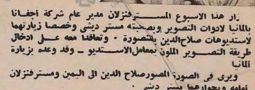 زار هذا الاسبوع المستر فنزلان مدير عام شركة أجفا
المانيا لادوات التصوير وبصحبته مستر ديشى وخصما زيارتهما
لاستديوهات صلاح الدين بالمنصورة . وتعاقدا معه على ادخال
طريقة التصوير الملون بمعامل الاستديو . وقد وعده بزيارة
المانيا
ويرى فى الصورة المصور صلاح الدين الى اليمين ومستر فنزلان
مستر ديشى